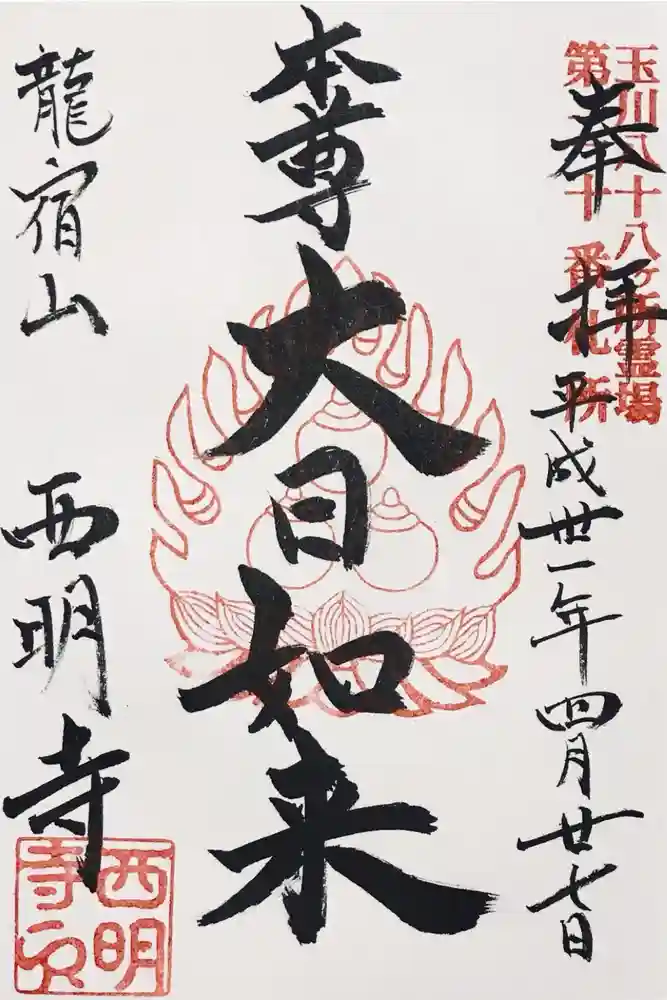 玉川八十八ヶ所霊場
第十番札所
奉拝
平成卅一年四月廿七日
本尊
大日如来
龍宿山
西明寺
西明
寺印